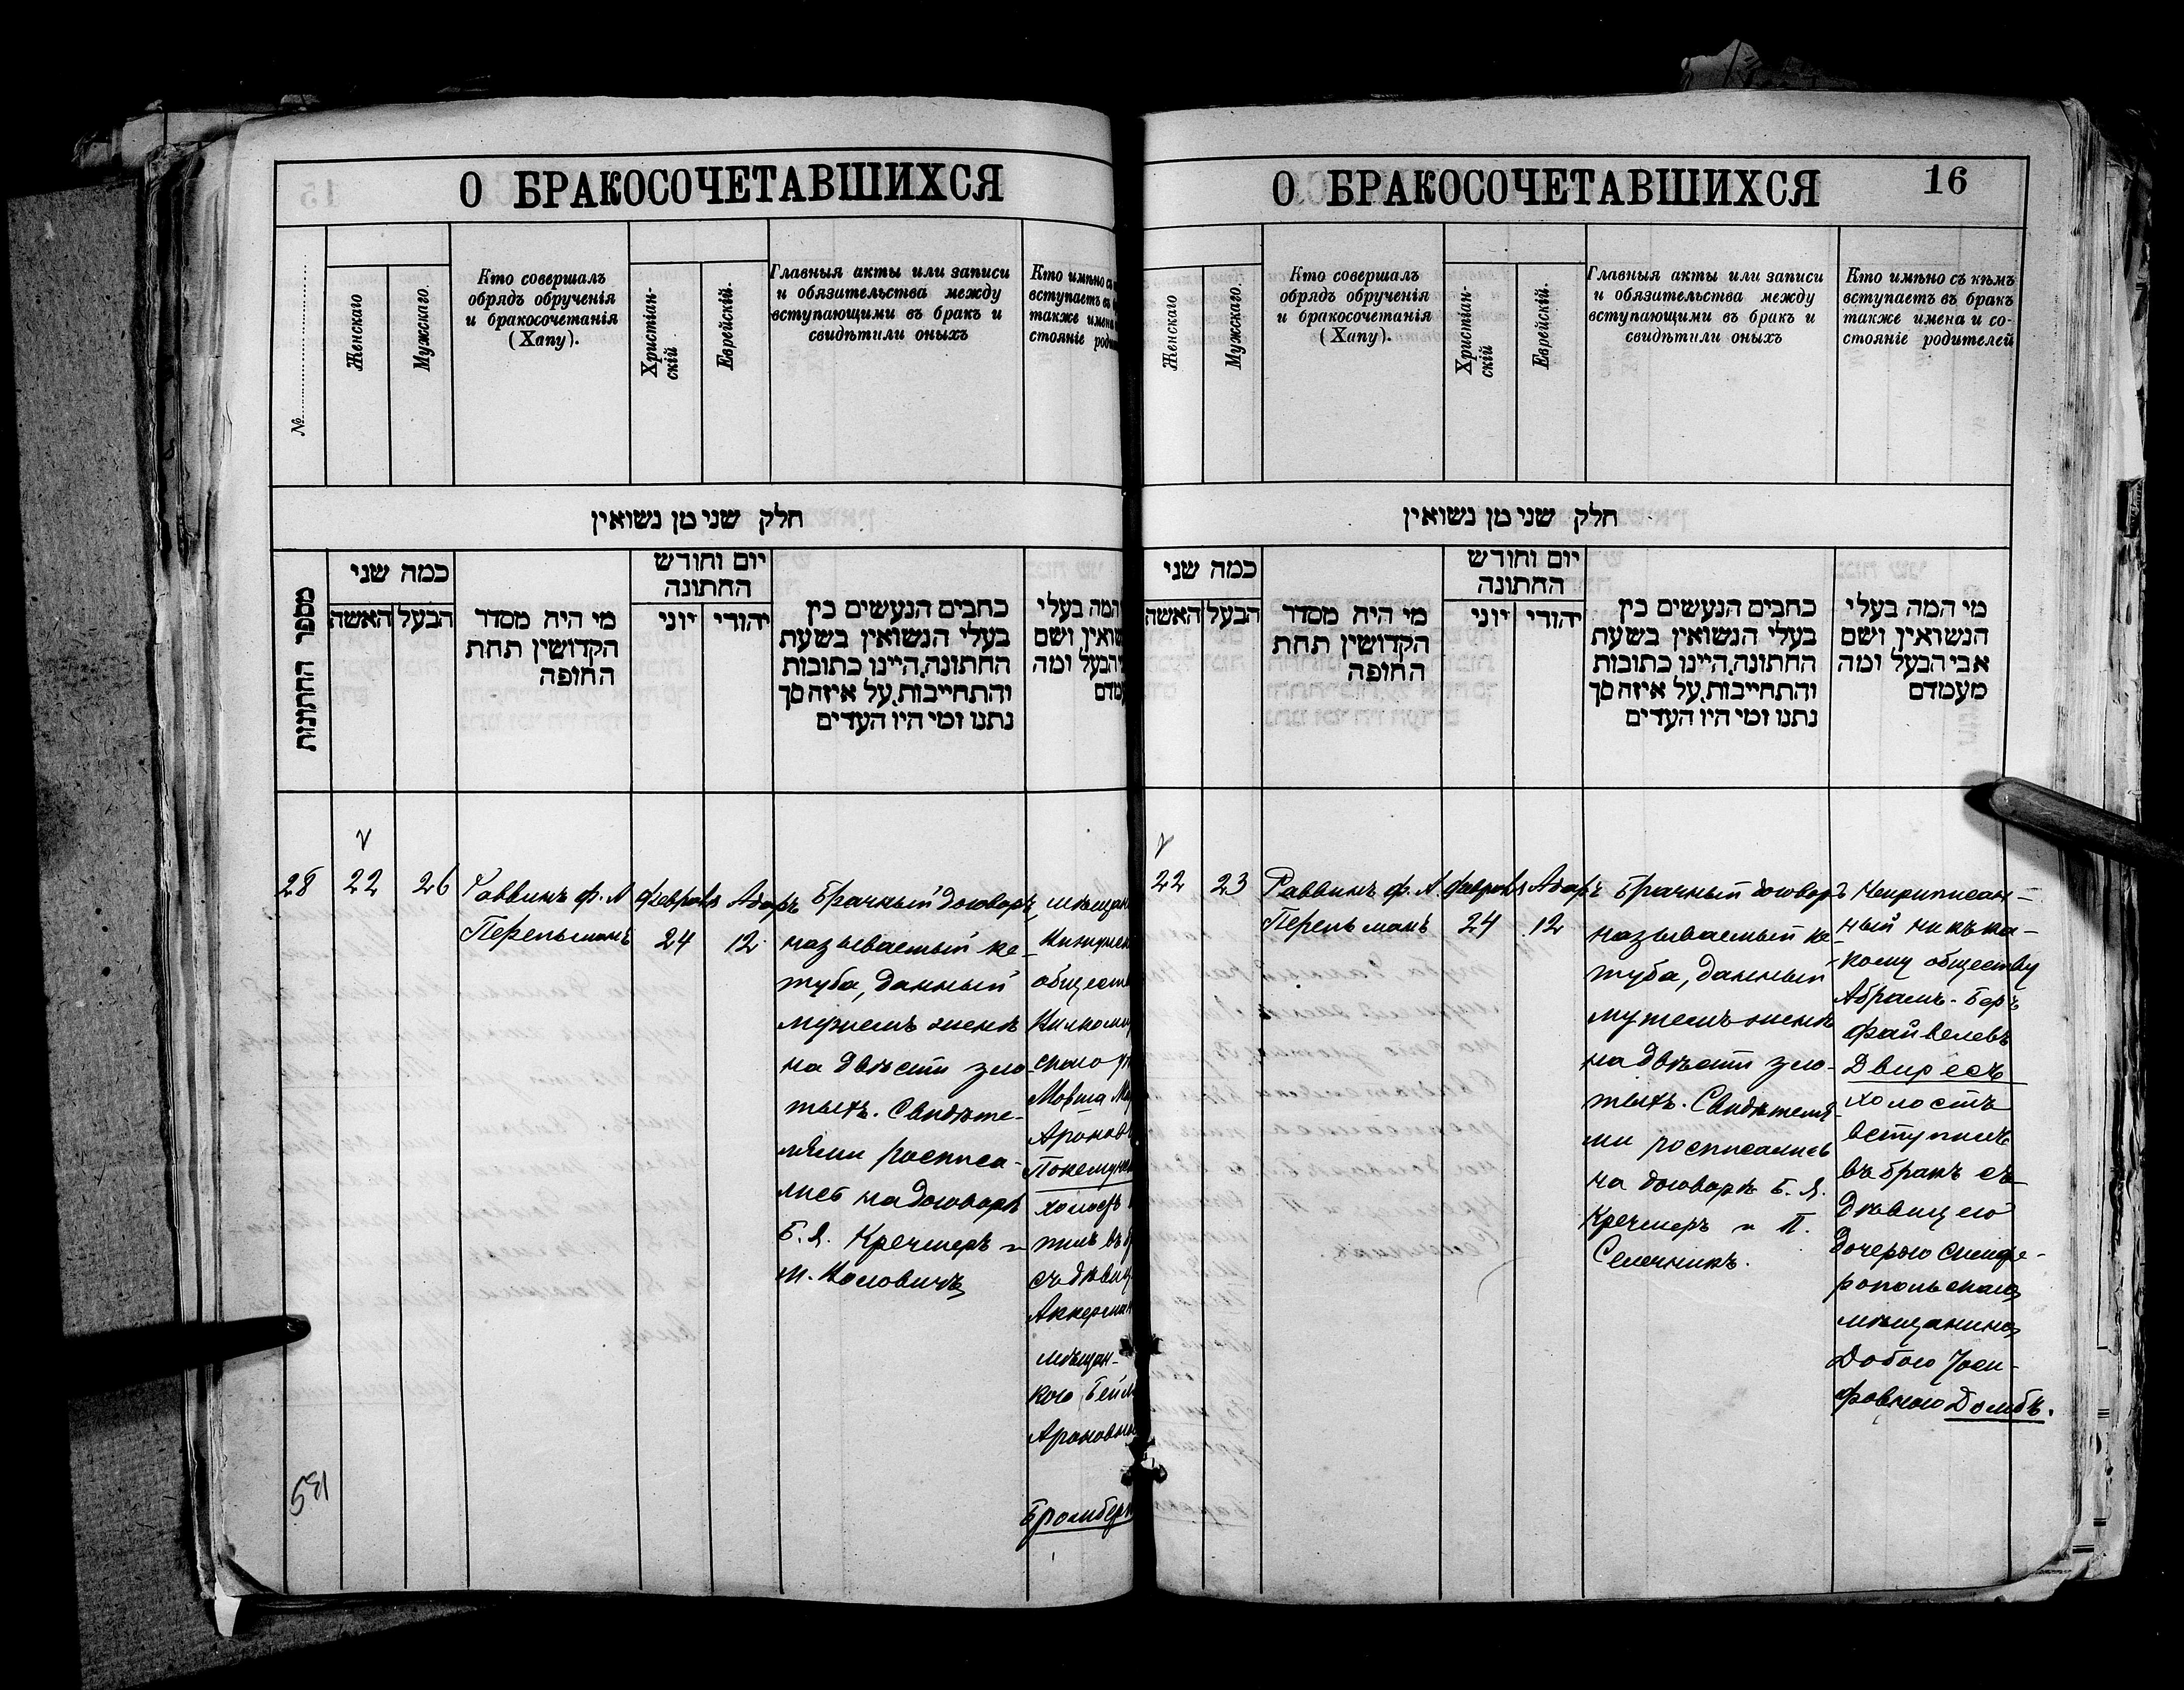 О БРАКОСОЧЕТАВШИХСЯ
№
Женскаго
Мужскаго.
Кто совершалъ
обрядъ обрученія
и бракосочетанія
(Хапу).
Христіан-
скій
Еврейскій.
Главныя акты или записи
и обязательства между
вступающими въ бракъ и
свидѣтили оныхъ
Кто имѣно
вступаетъ
также имена
стояніе
חלק שני מן נשואין
מספר החתונות
כמה שני
האשה
הבעל
מי היה מסדר
הקדושין תחת
החופה
יום וחודש
החתונה
יוני
יהודי
כתבים הנעשים בין
בעלי הנשואין בשעת
החתונה, היינו כתובות
והתחייבות, על איזה סך
נתנו ומי היו העדים
המה בעלי
ושם
הבעל ומה
28
22
26
Раввинъ ф. А
Перельманъ
Февраля
24
Адаръ
12
Брачный договоръ,
называемый ке-
туба, данный
мужемъ женѣ
на двѣсти зло-
тыхъ. Свидѣте-
лями росписа-
лись на договорѣ
Б. Я. Кречмеръ и
М. Коловичъ
общест
Вилкоми
скаго
Мовша
Аронов
холостъ
пилъ въ
съ дѣвиц
Аккерман
мѣщан-
кою Бейл
Ароновн
Бромберг
591
О БРАКОСОЧЕТАВШИХСЯ
16
Женскаго
Мужскаго.
Кто совершалъ
обрядъ обрученія
и бракосочетанія
(Хапу).
Христіан-
скій
Еврейскій.
Главныя акты или записи
и обязательства между
вступающими въ бракъ и
свидѣтили оныхъ
Кто имѣно съ кѣмъ
вступаетъ въ бракъ
также имена и со-
стояніе родителей
חלק שני מן נשואין
כמה שני
האשה
הבעל
מי היה מסדר
הקדושין תחת
החופה
יום וחודש
החתונה
יוני
יהודי
כתבים הנעשים בין
בעלי הנשואין בשעת
החתונה, היינו כתובות
והתחייבות, על איזה סך
נתנו ומי היו העדים
מי המה בעלי
הנשואין ושם
אבי הבעל ומה
מעמדם
22
23
Раввинъ ф. А.
Перельманъ
Февраля
24
Адаръ
12
Брачный договоръ
называемый ке-
туба, данный
мужемъ женѣ
на двѣсти зло-
тыхъ. Свидѣтеля-
ми росписались
на договорѣ Б. Я.
Кречмеръ и П.
Селечникъ.
Неприписан-
ный ни къ ка-
кому обществу
Абрамъ-Беръ
Файвелевъ
Двиресъ
холостъ
вступилъ
въ бракъ съ
дѣвицею
дочерью симфе-
ропольскаго
мѣщанина
Добою Іоси-
фовною Домбъ.